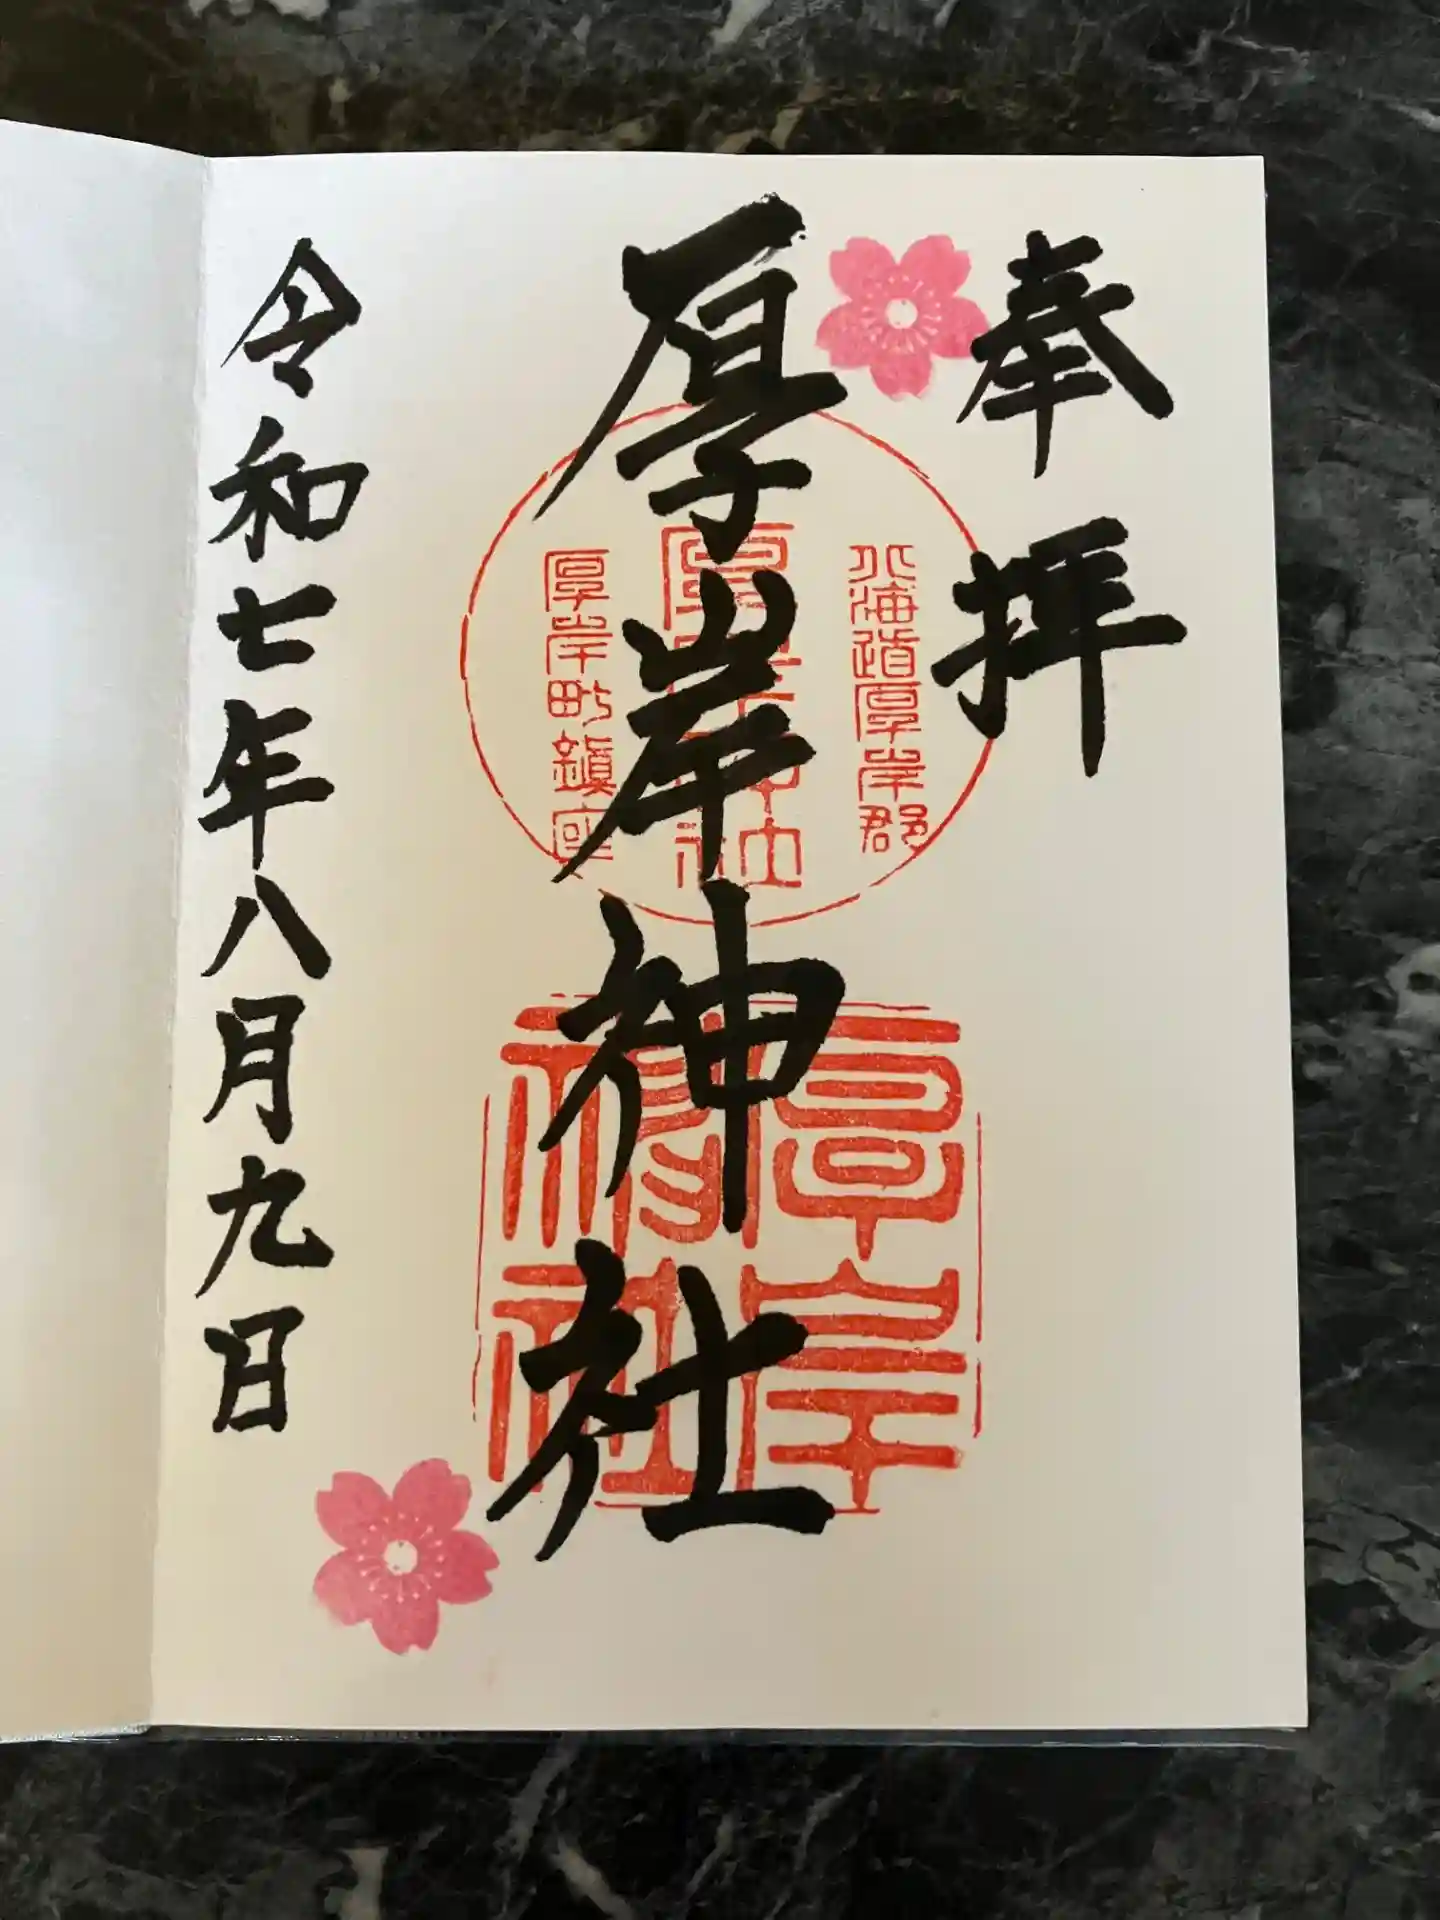 奉拝
北海道厚岸郡
厚岸神社
厚岸町鎮座
厚岸
神社
令和七年八月九日